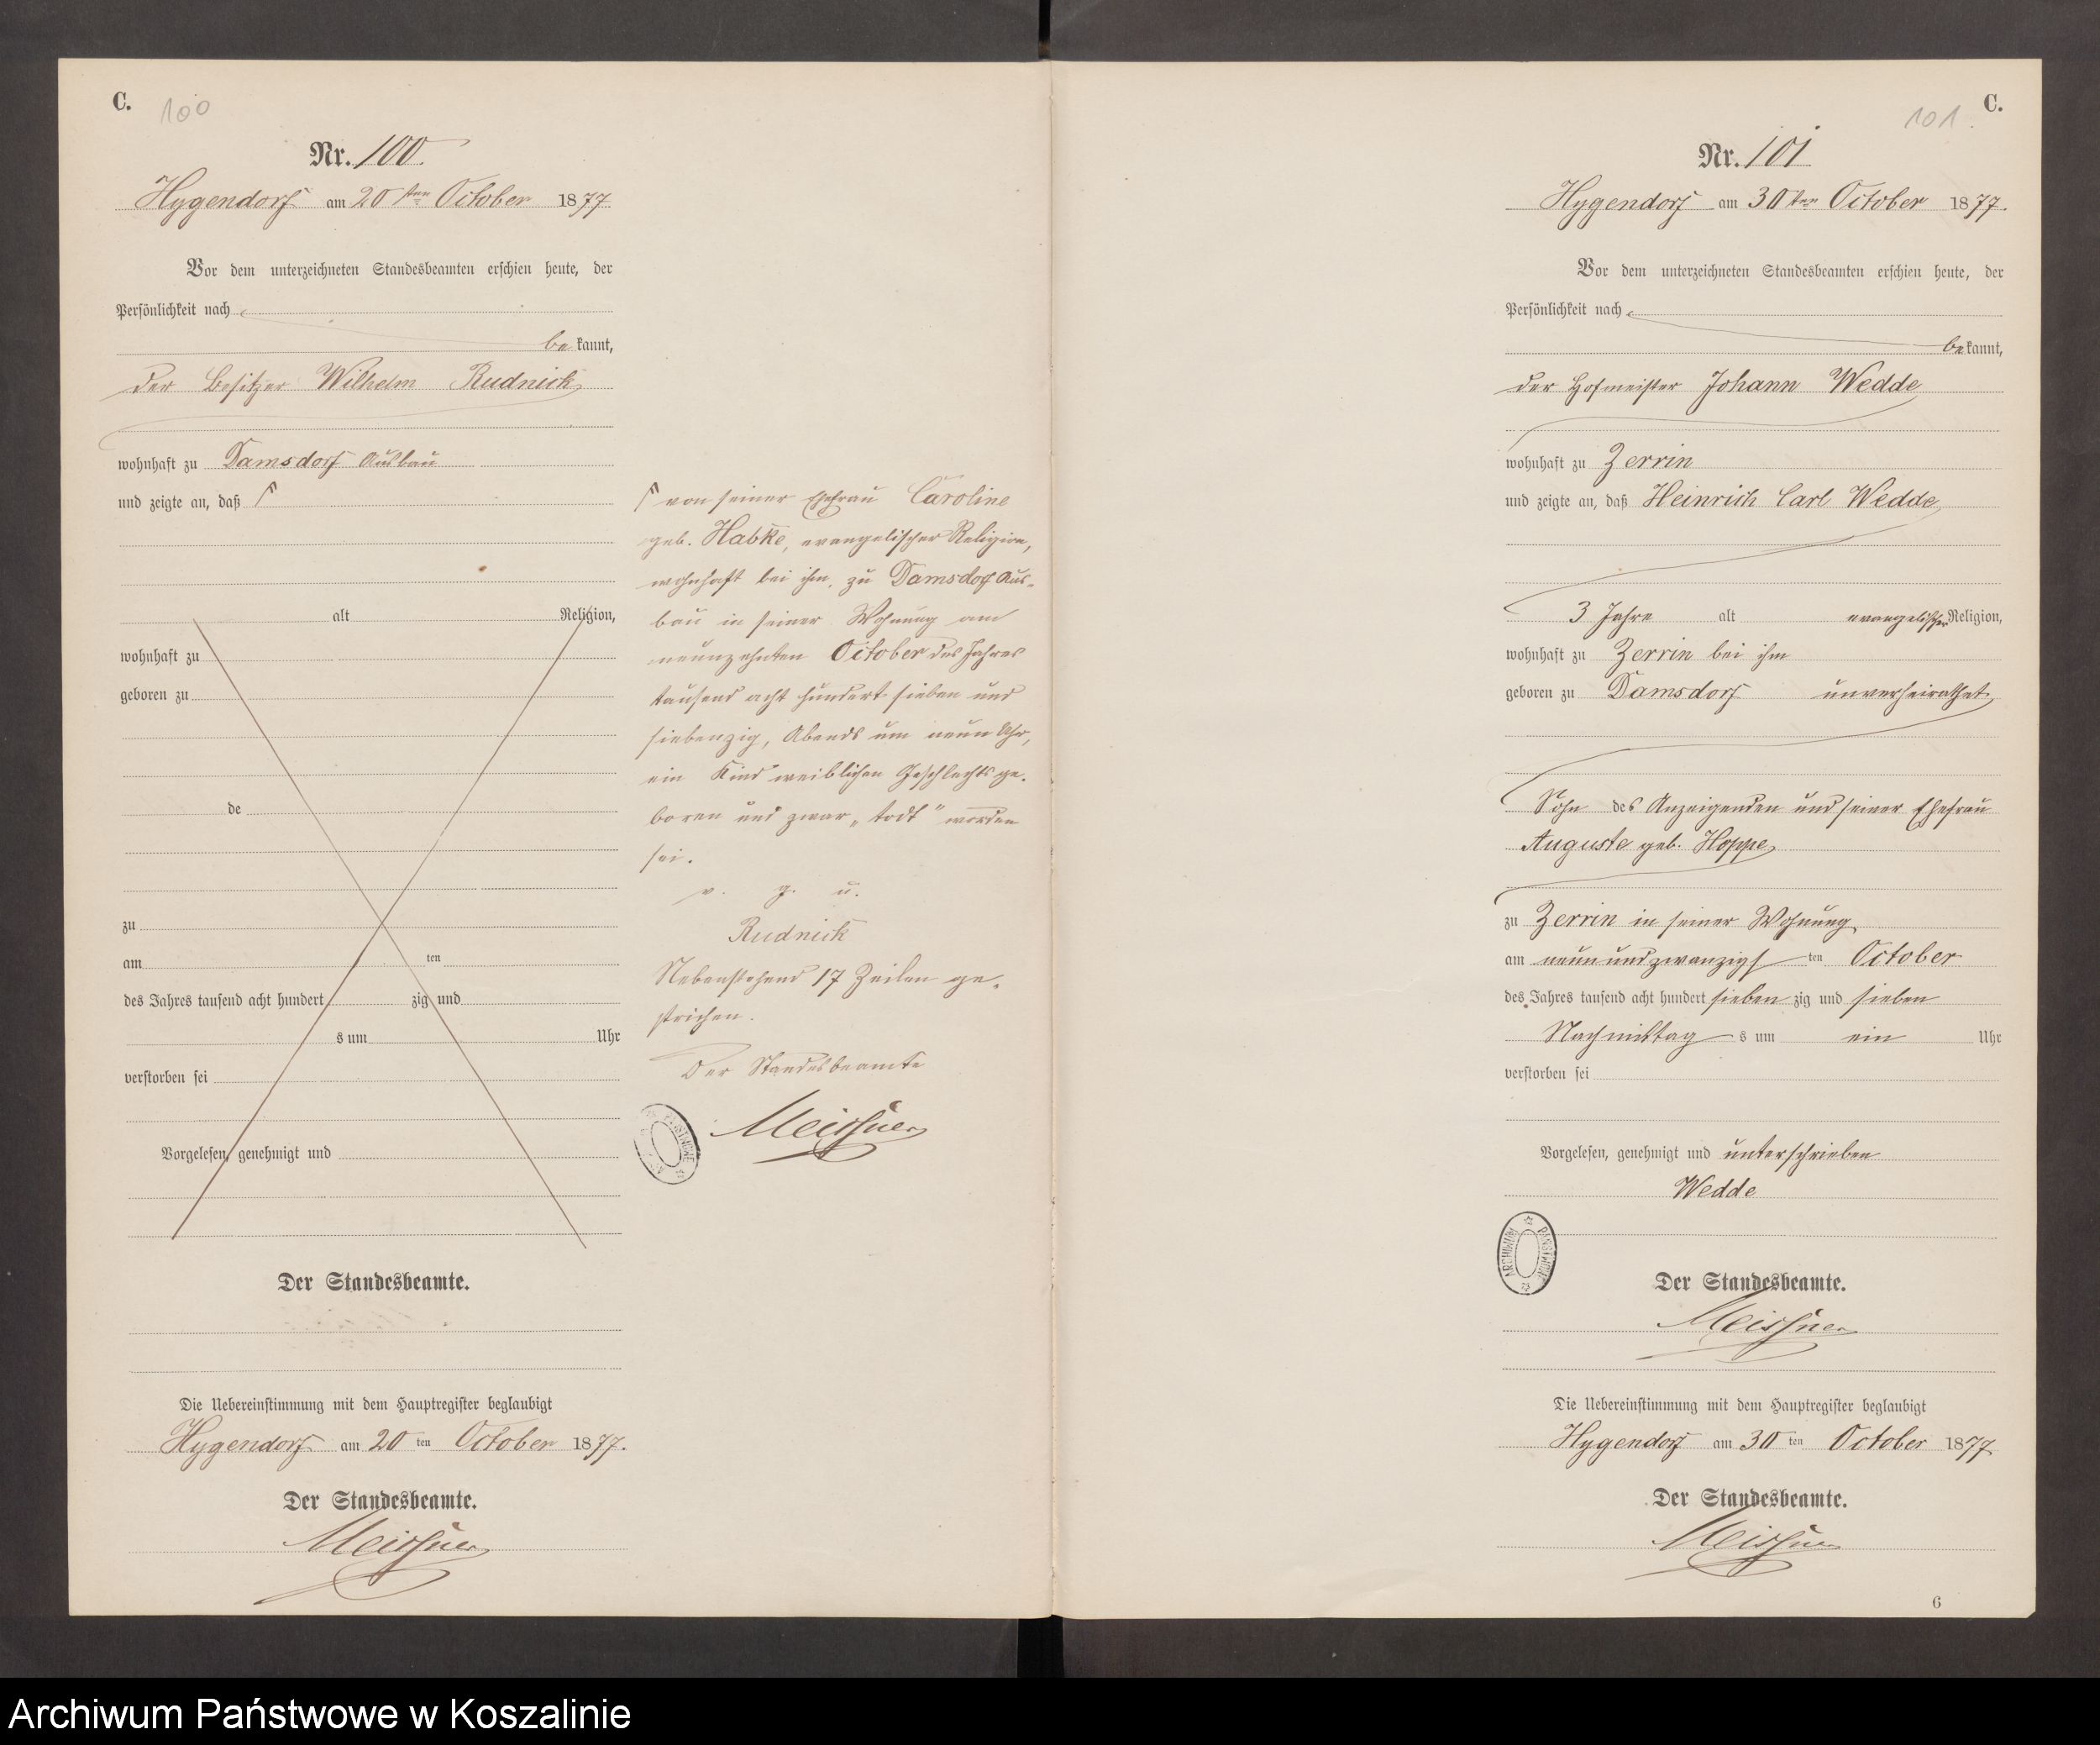 C.
100
Nr. 100.
Hygendorf am 20ten October 1877
Vor dem unterzeichneten Standesbeamten erschien heute, der
Persönlichkeit nach
bekannt,
der Besitzer Wilhelm Rudnick
wohnhaft zu Damsdorf Ausbau
und zeigte an, daß
alt Religion,
wohnhaft zu
geboren zu
de
zu
am ten
des Jahres tausend acht hundert zig und
s um Uhr
verstorben sei
Vorgelesen, genehmigt und
Der Standesbeamte.
Die Uebereinstimmung mit dem Hauptregister beglaubigt
Hygendorf am 20 ten October 1877.
Der Standesbeamte.
Meissner
von seiner Ehefrau Caroline
geb. Habke, evangelischer Religion,
wohnhaft bei ihm, zu Damsdorf Aus-
bau in seiner Wohnung am
neunzehnten October des Jahres
tausend acht hundert sieben und
siebenzig, Abends um neun Uhr,
ein Kind weiblichen Geschlechts ge-
boren und zwar „todt" worden
sei.
v. g. u.
Rudnick
Nebenstehend 17 Zeilen ge-
strichen.
Der Standesbeamte
Meissner
101
C.
Nr. 101
Hygendorf am 30ten October 1877.
Vor dem unterzeichneten Standesbeamten erschien heute, der
Persönlichkeit nach
bekannt,
der Hofmeister Johann Wedde
wohnhaft zu Zerrin
und zeigte an, daß Heinrich Carl Wedde
3 Jahre alt evangelischer Religion,
wohnhaft zu Zerrin bei ihm
geboren zu Damsdorf unverheirathet
Sohn des Anzeigenden und seiner Ehefrau
Auguste geb. Hoppe
zu Zerrin in seiner Wohnung
am neun und zwanzigsten October
des Jahres tausend acht hundert sieben zig und sieben
Nachmittag s um ein Uhr
verstorben sei
Vorgelesen, genehmigt und unterschrieben
Wedde
ARCHIWUM PAŃSTWOWE
Der Standesbeamte.
Meissner
Die Uebereinstimmung mit dem Hauptregister beglaubigt
Hygendorf am 30 ten October 1877
Der Standesbeamte.
Meissner
6
Archiwum Państwowe w Koszalinie